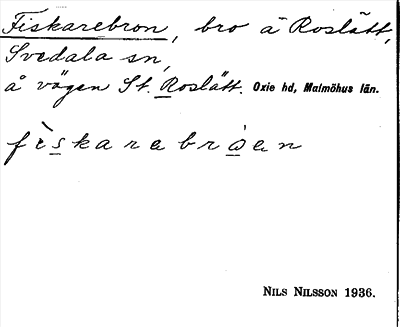 Fiskarebron, bro å Roslätt,
Svedala sn,
å vägen St. Roslätt. Oxie hd, Malmöhus län.
fìskarebròen
NILS NILSSON 1936.